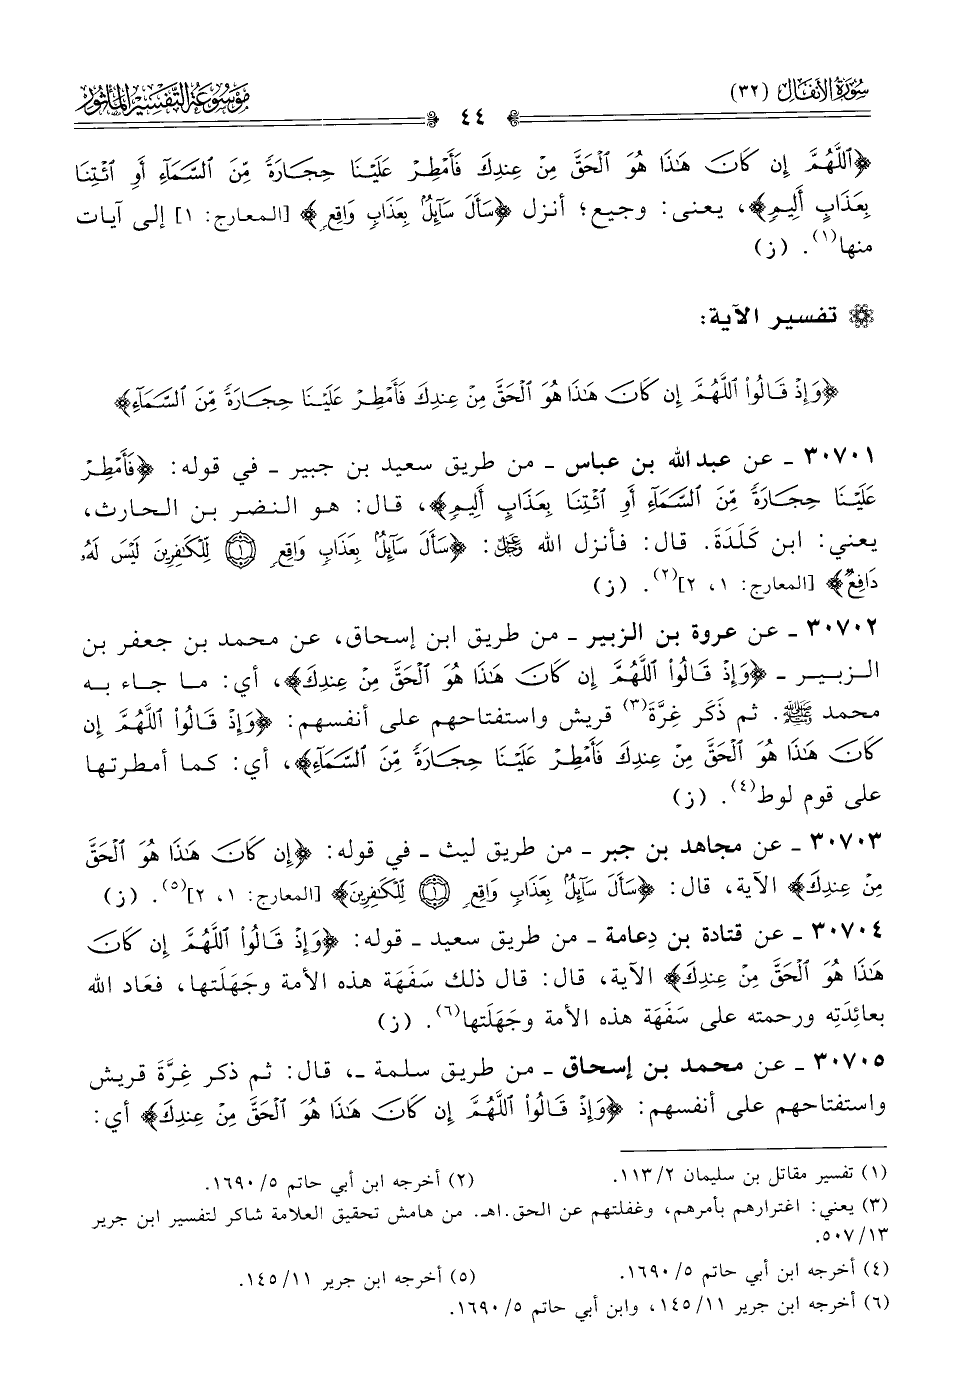 سُورَةُ الأَنفَالِ (٣٢)
٤٤
مَوْسُوعَةُ التَّفْسِيرِ المَأْثُورِ
﴿ٱللَّهُمَّ إِن كَانَ هَٰذَا هُوَ ٱلْحَقَّ مِنْ عِندِكَ فَأَمْطِرْ عَلَيْنَا حِجَارَةً مِّنَ ٱلسَّمَآءِ أَوِ ٱئْتِنَا
بِعَذَابٍ أَلِيمٍ﴾، يعنى: وجيع؛ أنزل ﴿سَأَلَ سَآئِلٌۢ بِعَذَابٍ وَاقِعٍ﴾ [المعارج: ١] إلى آيات
منها(١). (ز)
تفسير الآية:
﴿وَإِذْ قَالُوا۟ ٱللَّهُمَّ إِن كَانَ هَٰذَا هُوَ ٱلْحَقَّ مِنْ عِندِكَ فَأَمْطِرْ عَلَيْنَا حِجَارَةً مِّنَ ٱلسَّمَآءِ﴾
٣٠٧٠١ ـ عن عبد الله بن عباس ـ من طريق سعيد بن جبير ـ في قوله: ﴿فَأَمْطِرْ
عَلَيْنَا حِجَارَةً مِّنَ ٱلسَّمَآءِ أَوِ ٱئْتِنَا بِعَذَابٍ أَلِيمٍ﴾، قال: هو النضر بن الحارث،
يعني: ابن كَلَدَةَ. قال: فأنزل الله عَزَّ وَجَلَّ: ﴿سَأَلَ سَآئِلٌۢ بِعَذَابٍ وَاقِعٍ ۝١ لِّلْكَٰفِرِينَ لَيْسَ لَهُۥ
دَافِعٌ﴾ [المعارج: ١، ٢](٢). (ز)
٣٠٧٠٢ ـ عن عروة بن الزبير ـ من طريق ابن إسحاق، عن محمد بن جعفر بن
الزبير ـ ﴿وَإِذْ قَالُوا۟ ٱللَّهُمَّ إِن كَانَ هَٰذَا هُوَ ٱلْحَقَّ مِنْ عِندِكَ﴾، أي: ما جاء به
محمد ﷺ. ثم ذَكَر غِرَّةَ(٣) قريش واستفتاحهم على أنفسهم: ﴿وَإِذْ قَالُوا۟ ٱللَّهُمَّ إِن
كَانَ هَٰذَا هُوَ ٱلْحَقَّ مِنْ عِندِكَ فَأَمْطِرْ عَلَيْنَا حِجَارَةً مِّنَ ٱلسَّمَآءِ﴾، أي: كما أمطرتها
على قوم لوط(٤). (ز)
٣٠٧٠٣ ـ عن مجاهد بن جبر ـ من طريق ليث ـ في قوله: ﴿إِن كَانَ هَٰذَا هُوَ ٱلْحَقَّ
مِنْ عِندِكَ﴾ الآية، قال: ﴿سَأَلَ سَآئِلٌۢ بِعَذَابٍ وَاقِعٍ ۝١ لِّلْكَٰفِرِينَ﴾ [المعارج: ١، ٢](٥). (ز)
٣٠٧٠٤ ـ عن قتادة بن دِعامة ـ من طريق سعيد ـ قوله: ﴿وَإِذْ قَالُوا۟ ٱللَّهُمَّ إِن كَانَ
هَٰذَا هُوَ ٱلْحَقَّ مِنْ عِندِكَ﴾ الآية، قال: قال ذلك سَفَهَة هذه الأمة وجَهَلَتها، فعَاد الله
بعائِدَتِه ورحمته على سَفَهَة هذه الأمة وجَهَلَتها(٦). (ز)
٣٠٧٠٥ ـ عن محمد بن إسحاق ـ من طريق سلمة ـ، قال: ثم ذكر غِرَّةَ قريش
واستفتاحهم على أنفسهم: ﴿وَإِذْ قَالُوا۟ ٱللَّهُمَّ إِن كَانَ هَٰذَا هُوَ ٱلْحَقَّ مِنْ عِندِكَ﴾ أي:
(١) تفسير مقاتل بن سليمان ٢/ ١١٣. (٢) أخرجه ابن أبي حاتم ٥/ ١٦٩٠.
(٣) يعني: اغترارهم بأمرهم، وغفلتهم عن الحق.اهـ. من هامش تحقيق العلامة شاكر لتفسير ابن جرير
١٣/ ٥٠٧.
(٤) أخرجه ابن أبي حاتم ٥/ ١٦٩٠. (٥) أخرجه ابن جرير ١١/ ١٤٥.
(٦) أخرجه ابن جرير ١١/ ١٤٥، وابن أبي حاتم ٥/ ١٦٩٠.